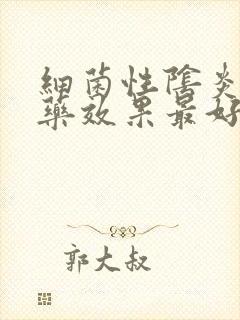 細菌性陰炎
藥效果最好
郭大叔